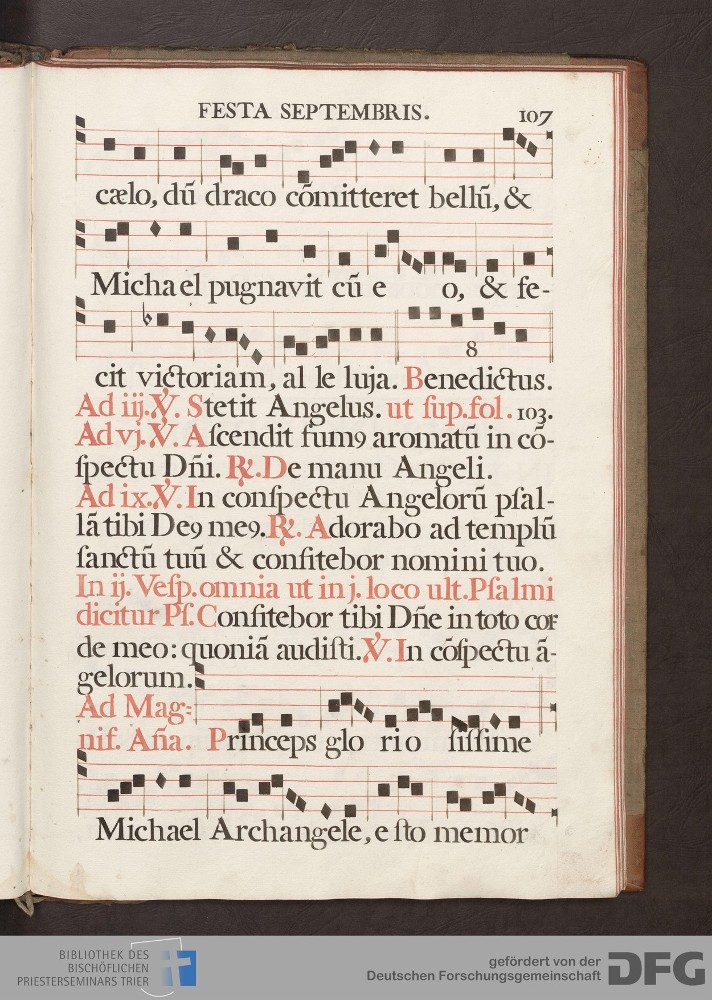 FESTA SEPTEMBRIS. 107
cælo, dū draco cōmitteret bellū, &
Michael pugnavit cū e o, & fe-
8
cit victoriam, al le luja. Benedictus.
Ad iij. ℣. Stetit Angelus. ut ſup. fol. 103.
Ad vj. ℣. Aſcendit fumꝯ aromatū in cō-
ſpectu Dn̄i. ℟. De manu Angeli.
Ad ix. ℣. In conſpectu Angelorū pſal-
lā tibi Deꝯ meꝯ. ℟. Adorabo ad templū
ſanctū tuū & confitebor nomini tuo.
In ij. Veſp. omnia ut in j. loco ult. Pſalmi
dicitur Pſ. Confitebor tibi Dn̄e in toto cor-
de meo: quoniā audiſti. ℣. In cōſpectu ā-
gelorum.
Ad Mag-
nif. An̄a. Princeps glo rio ſiſſime
Michael Archangele, e ſto memor
BIBLIOTHEK DES
BISCHÖFLICHEN
PRIESTERSEMINARS TRIER
gefördert von der
Deutschen Forschungsgemeinschaft DFG